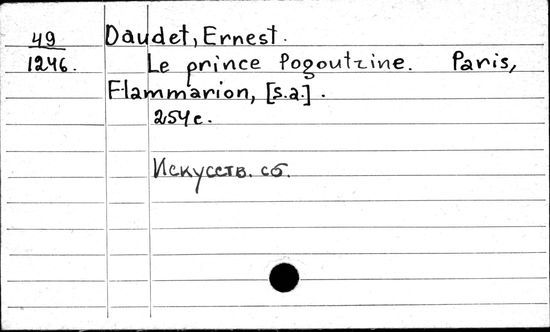 49
1246.
Daudet, Ernest.
Le prince Pogoutzine. Paris,
Flammarion, [s.a.].
254 c.
Искусств. сб.